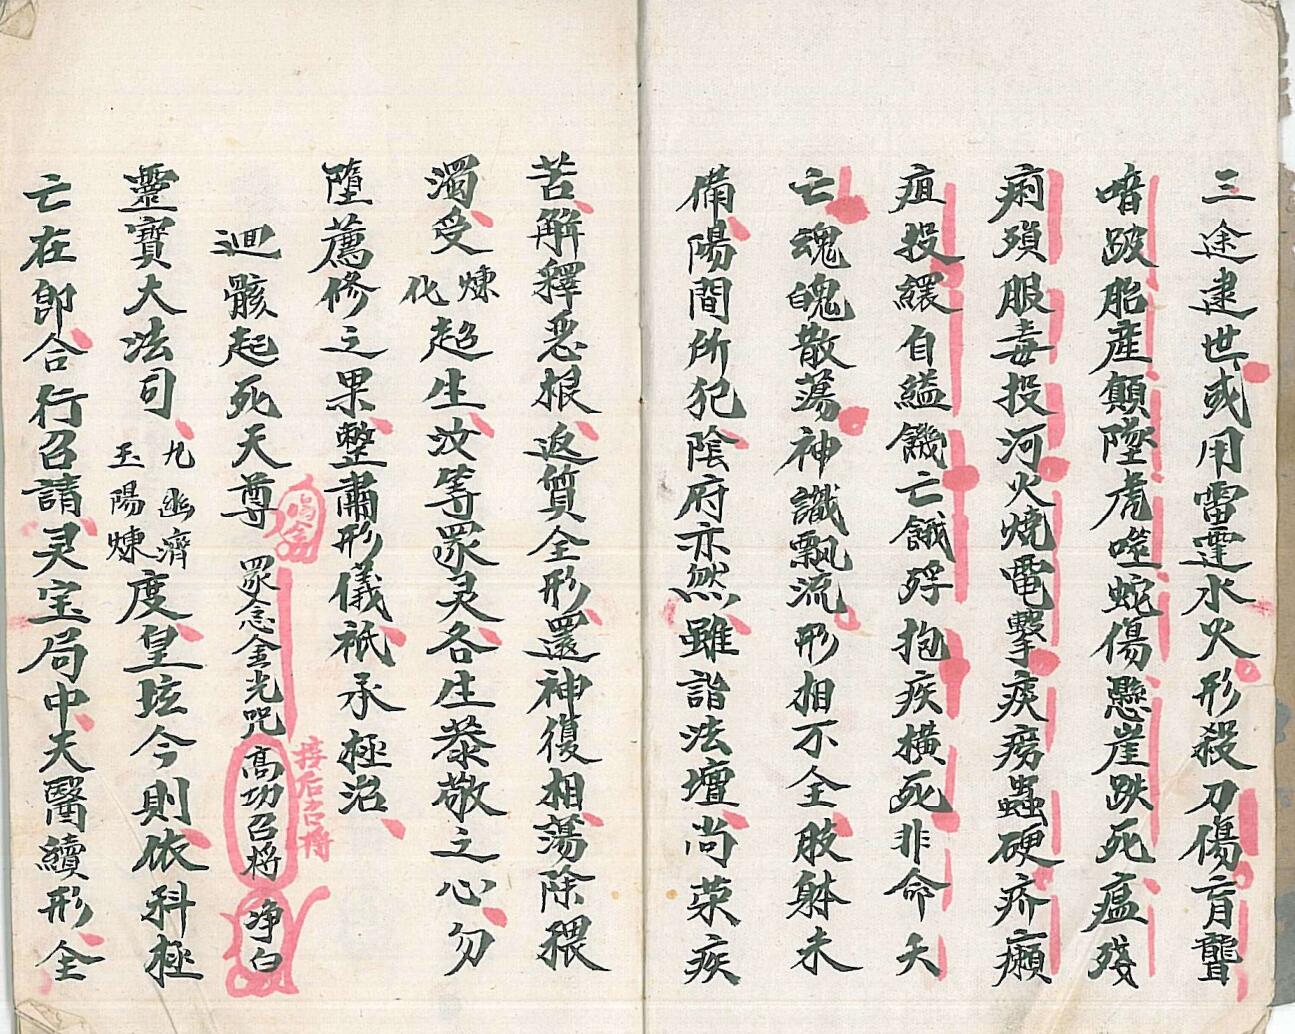 三途逮世或用雷霆水火形殺刀傷盲聾
喑跛胎產顛墜虎噬蛇傷懸崖跌死瘟殘
痢殞服毒投河火燒電擊痰癆蠱硬疥癩
疽投繯自縊饑亡餓殍抱疾橫死非命夭
亡魂魄散蕩神識飄流形相不全肢躰未
備陽間所犯陰府亦然雖詣法壇尚荣疾
苦解釋惡根返質全形還神復相蕩除穢
濁受煉化超生汝等眾灵各生恭敬之心勿
墮薦修之果整肅形儀祇承極治
迴骸起死天尊 眾念金光咒 高功召將 净白
接后召將
靈寶大法司九幽濟玉陽煉度皇坛今則依科極
亡在即合行召請灵宝局中天醫續形全